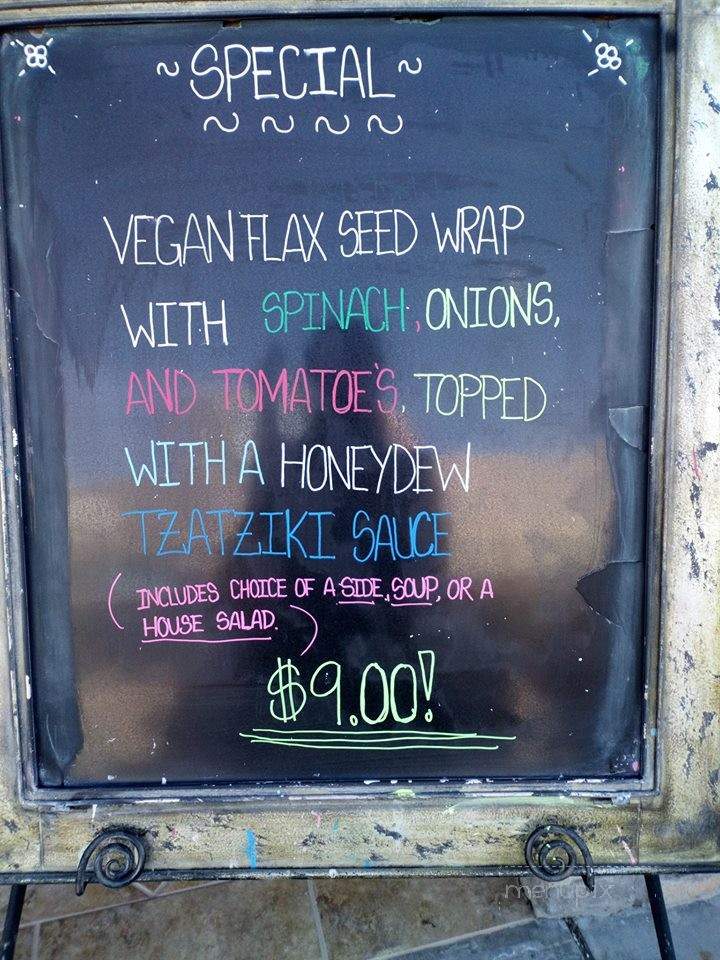 ~ SPECIAL ~
~ ~ ~ ~
VEGAN FLAX SEED WRAP
WITH SPINACH, ONIONS,
AND TOMATOE'S, TOPPED
WITH A HONEYDEW
TZATZIKI SAUCE
( INCLUDES CHOICE OF A SIDE, SOUP, OR A
HOUSE SALAD. )
$9.00!
menupix